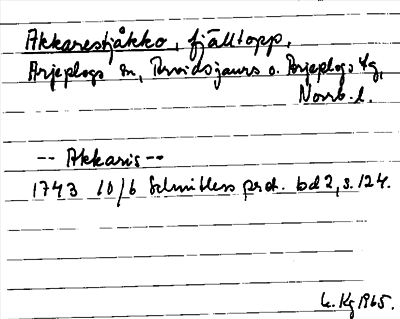 Akkarestjåkko, fjälltopp,
Arjeplogs sn, Arvidsjaurs o. Arjeplogs tg,
Norrb. l.
-- Akkaris --
1743 10/6 Schnitlers prot. bd 2, s. 124.
1965.